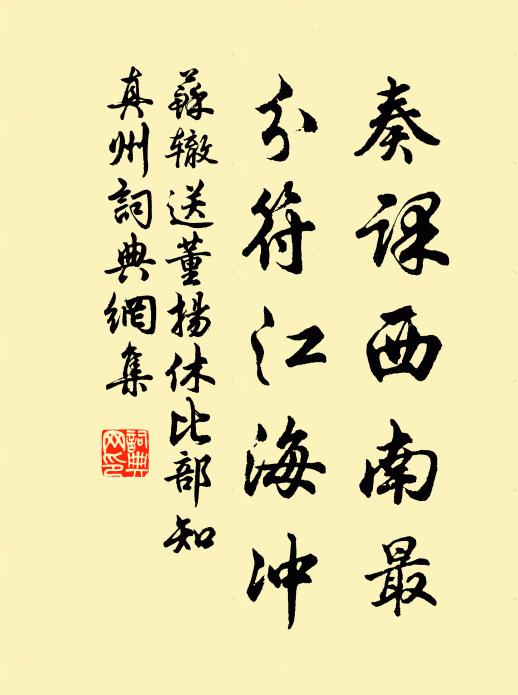 奏课西南最
分符江海冲
蘇辙送董揚休比部知
真州詞典網集
詞典
网印